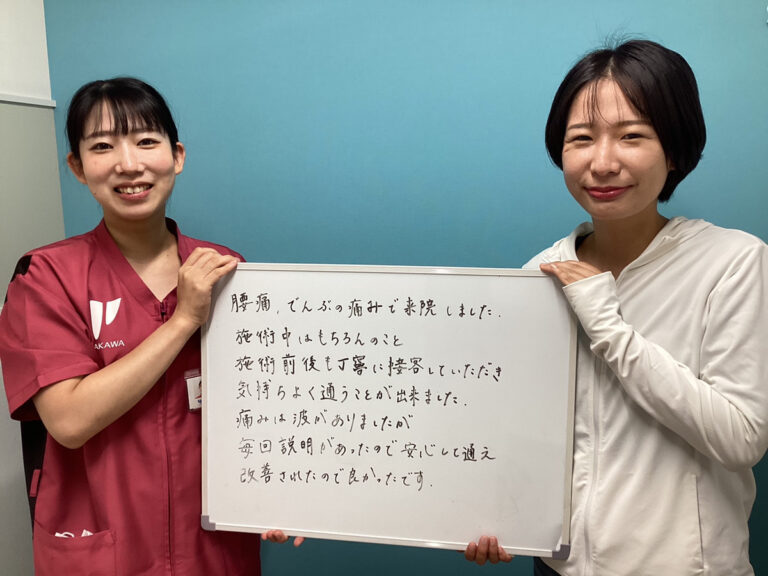 腰痛、でんぶの痛みで来院しました.
施術中はもちろんのこと
施術前後も丁寧に接客していただき
気持ちよく通うことが出来ました.
痛みは波がありましたが
毎回説明があったので安心して通え
改善されたので良かったです.
AKAWA